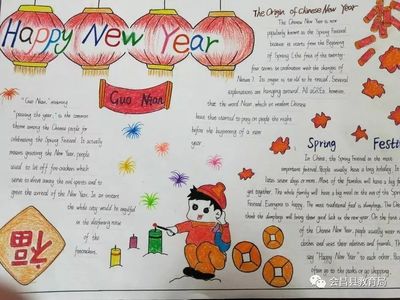 Happy New Year
Guo Nian
"Guo Nian", meaning
"passing the year," is the common
theme among the Chinese people for
celebrating the Spring Festival. It actually
means greeting the New Year, people
used to let off fire-crackers which
serve to drive away the evil spirits and to
greet the arrival of the New Year. In an instant
the whole city would be engulfed
in the deafening noise
of the
firecrackers.
福
The Origin of Chinese New Year
The Chinese New Year is now
popularly known as the Spring Festival
because it starts from the Beginning
of Spring (the first of the twenty-
four terms in coordination with the changes of
Nature). Its origin is too old to be traced. Several
explanations are hanging around. All agree, however,
that the word Nian which in modern Chinese
year
before the beginning of a new
year.
Spring Festi
In China, the Spring Festival is the most
important festival. People usually have a long holiday. In
of the families will have a big
get together. The whole family will have a big meal on the eve of the Spring
Festival. Everyone is happy. The most traditional food is dumpling. The Chinese
think the dumplings will bring them good luck in the new year. On the first
of the Chinese New Year, people usually wear new
clothes and visit their relatives and friends. They
say "Happy New Year" to each other. People
often go to the parks or go shopping.
会昌县教育局